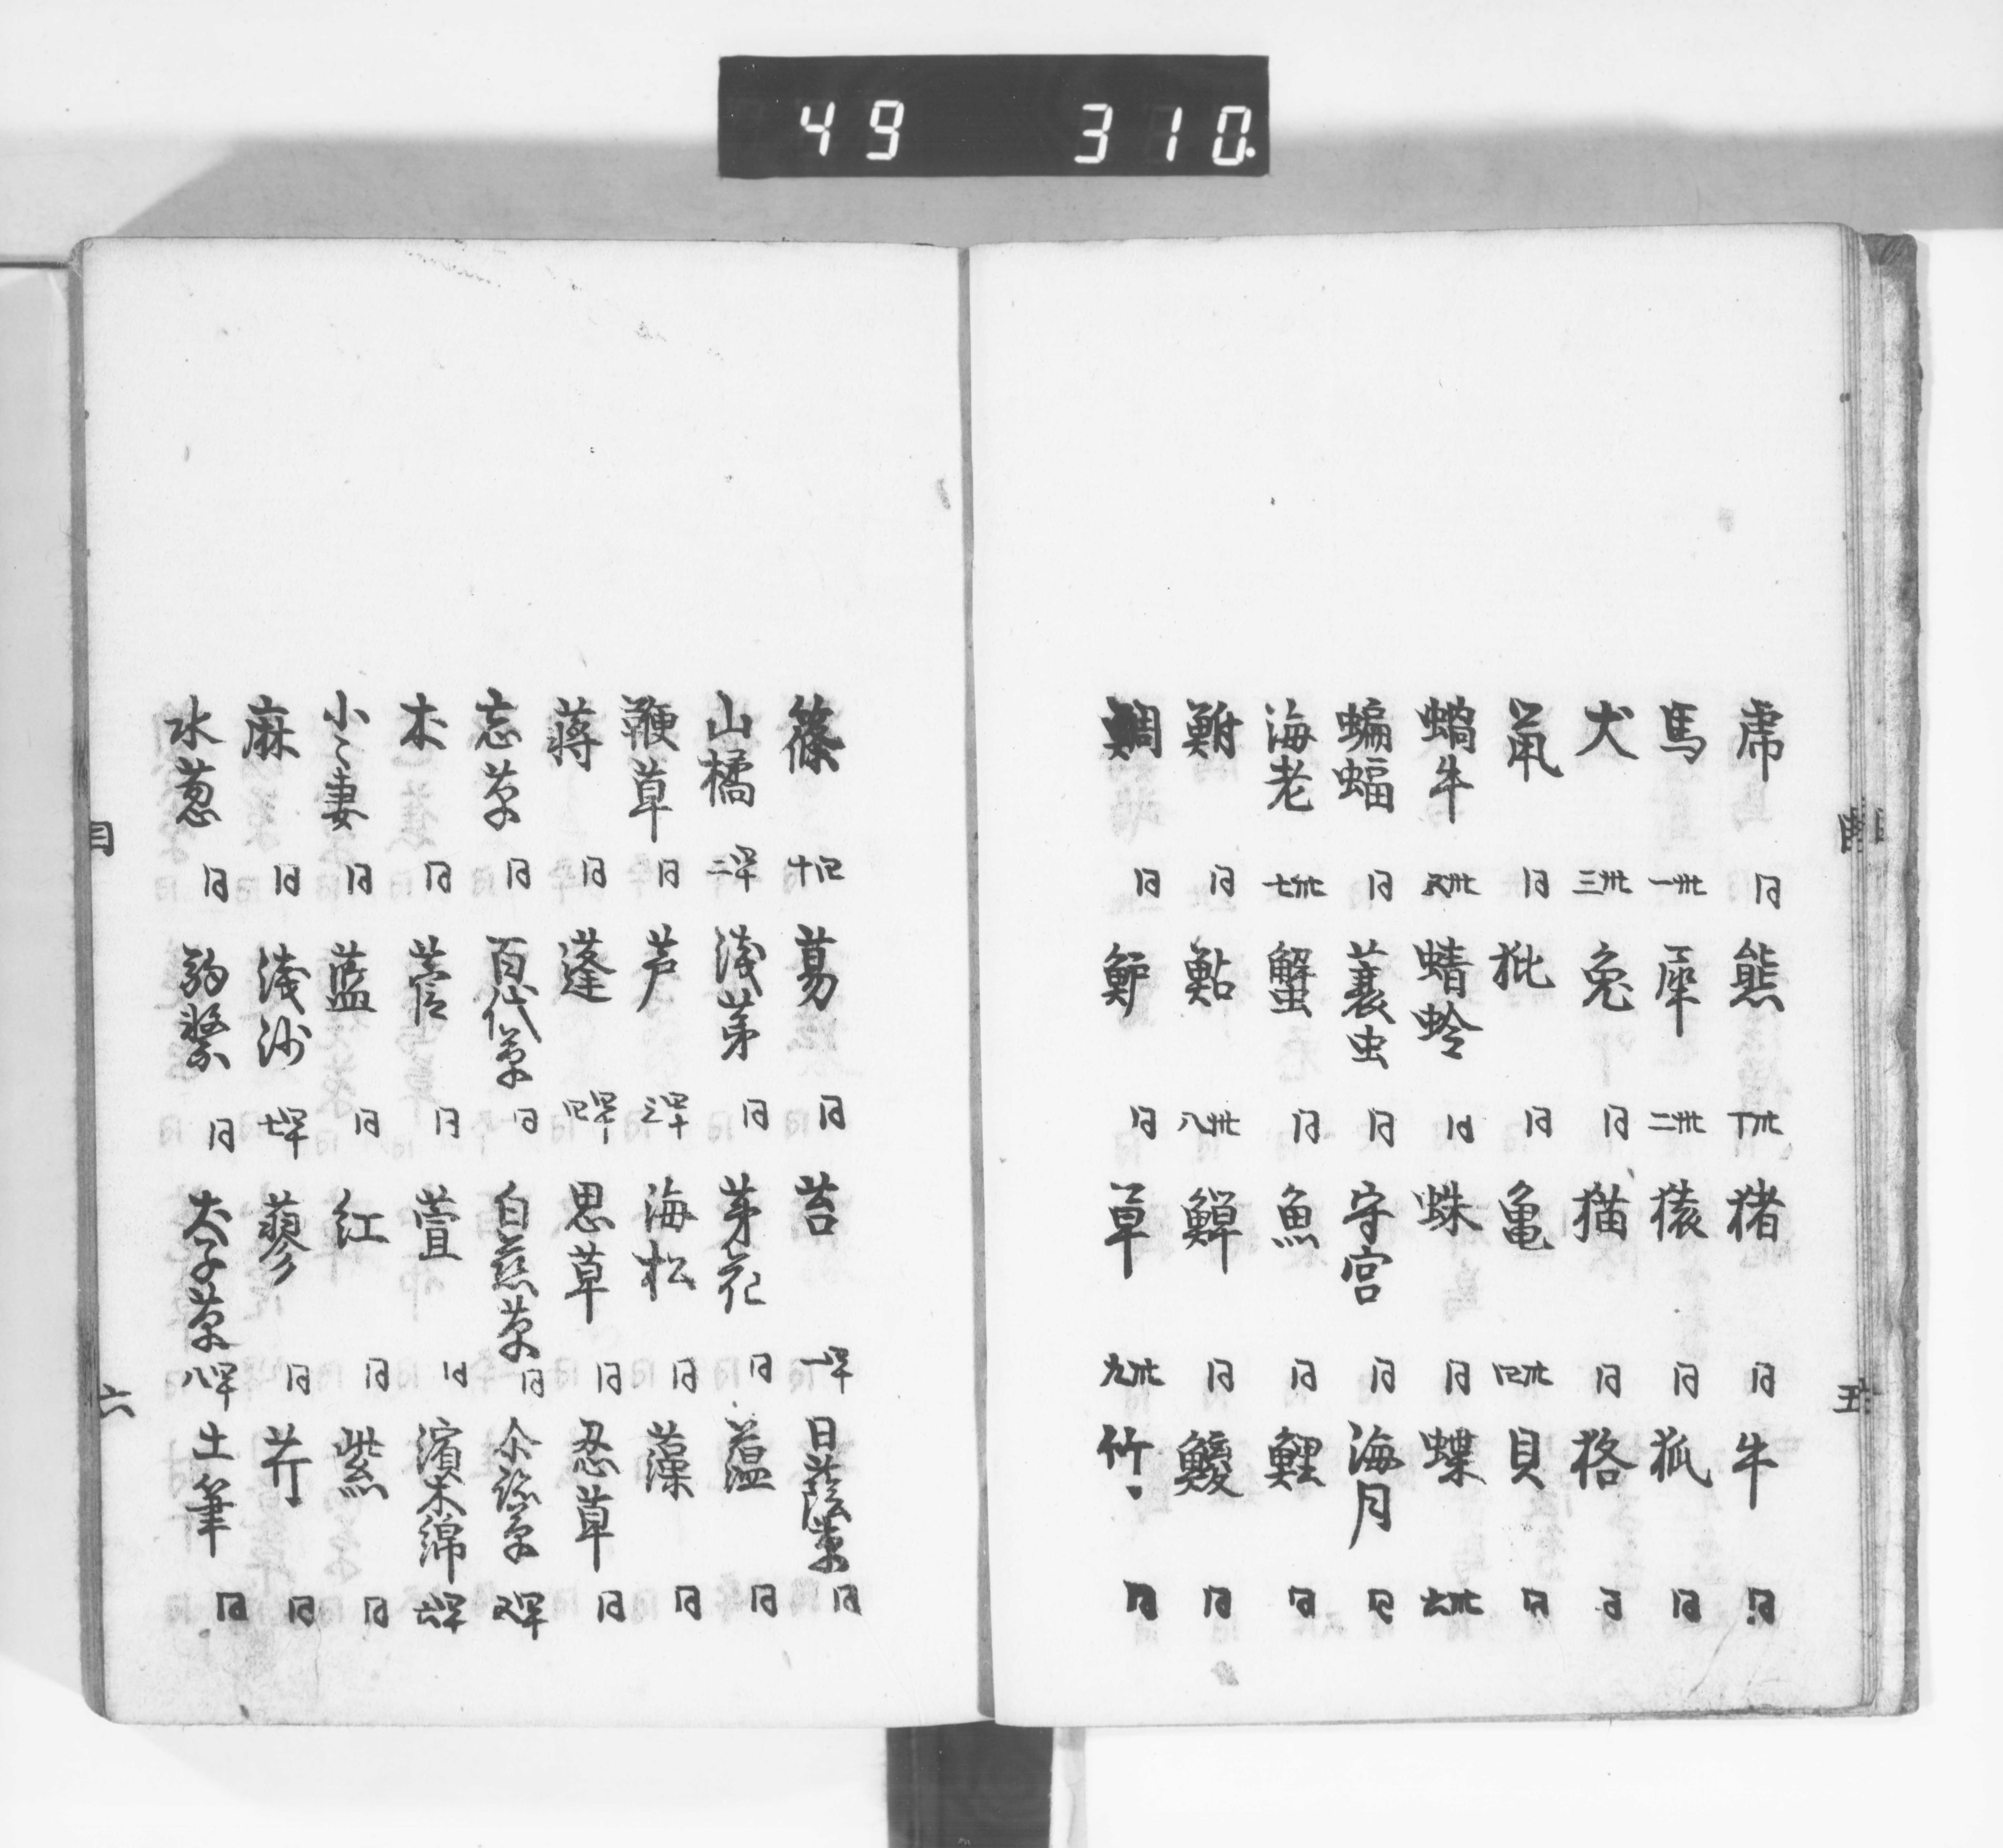 49 310.
虎 同 熊 丁卅 猪 同 牛 同
馬 一卅 犀 二卅 猿 同 狐 同
犬 三卅 兔 同 猫 同 狢 同
鼠 同 同 亀 四卅 貝 同
蝸牛 五卅 蜻蛉 同 蛛 同 蝶 六卅
蝙蝠 同 蓑虫 同 守宮 同 海月 同
海老 七卅 蟹 同 魚 同 鯉 同
同 鮎 八卅 同 同
鯛 同 同 草 九卅 竹 同
五
篠 十四 葛 同 苔 一四十 日蔭草 同
山橘 二四十 浅茅 同 茅花 同 薀 同
鞭草 同 芦 三四十 海松 同 藻 同
蒋 同 蓬 四四十 思草 同 忍草 同
忘草 同 百代草 同 同 五四十
木 同 菅 同 萱 同 濱木綿 六四十
小〻妻 同 藍 同 紅 同 紫 同
麻 同 浅沙 七四十 蓼 同 芹 同
水葱 同 同 八四十 土筆 同
目 六